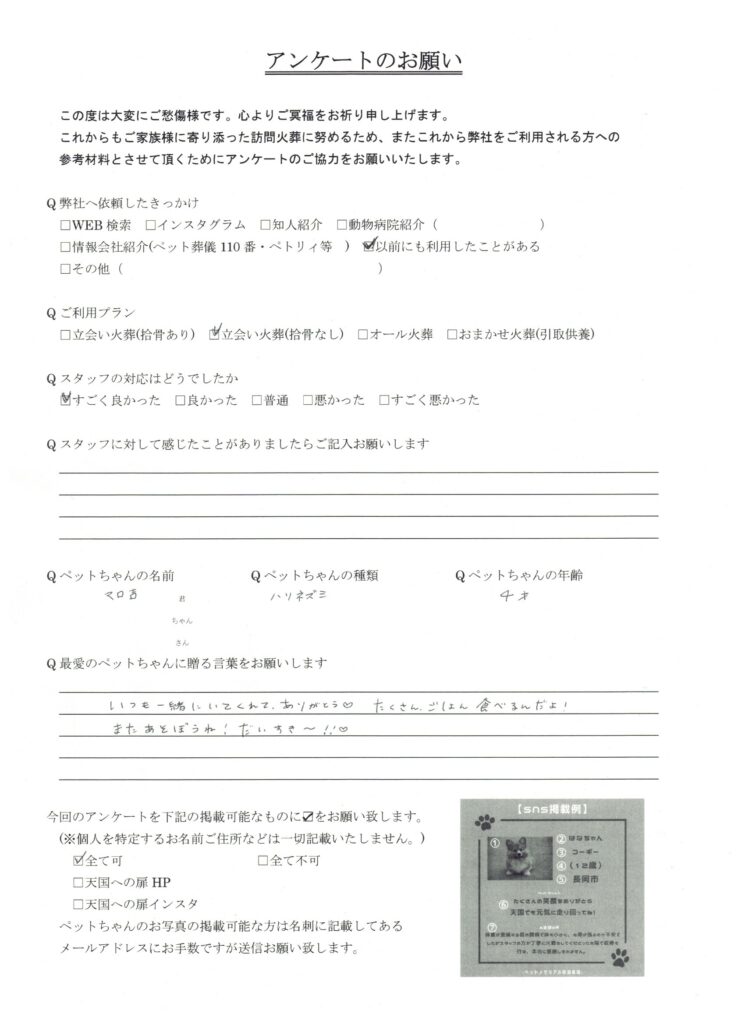 アンケートのお願い
この度は大変にご愁傷様です。心よりご冥福をお祈り申し上げます。
これからもご家族様に寄り添った訪問火葬に努めるため、またこれから弊社をご利用される方への
参考材料とさせて頂くためにアンケートのご協力をお願いいたします。
Q 弊社へ依頼したきっかけ
□WEB 検索 □インスタグラム □知人紹介 □動物病院紹介（ ）
□情報会社紹介(ペット葬儀 110 番・ペトリィ等 ) ☑以前にも利用したことがある
□その他（ ）
Q ご利用プラン
□立会い火葬(拾骨あり) ☑立会い火葬(拾骨なし) □オール火葬 □おまかせ火葬(引取供養)
Q スタッフの対応はどうでしたか
☑すごく良かった □良かった □普通 □悪かった □すごく悪かった
Q スタッフに対して感じたことがありましたらご記入お願いします
Q ペットちゃんの名前 Q ペットちゃんの種類 Q ペットちゃんの年齢
マロ吉 君 ハリネズミ 4才
ちゃん
さん
Q 最愛のペットちゃんに贈る言葉をお願いします
いつも一緒にいてくれて、ありがとう♡ たくさん、ごはん 食べるんだよ!
またあそぼうね! だいすき〜!!♡
今回のアンケートを下記の掲載可能なものに☑をお願い致します。
(※個人を特定するお名前ご住所などは一切記載いたしません。)
☑全て可 □全て不可
□天国への扉 HP
□天国への扉インスタ
ペットちゃんのお写真の掲載可能な方は名刺に記載してある
メールアドレスにお手数ですが送信お願い致します。
【sns掲載例】
① ② はなちゃん
③ コーギー
④ (12歳)
⑤ 長岡市
⑥ たくさんの笑顔をありがとう
天国でも元気に走り回ってね!
⑦